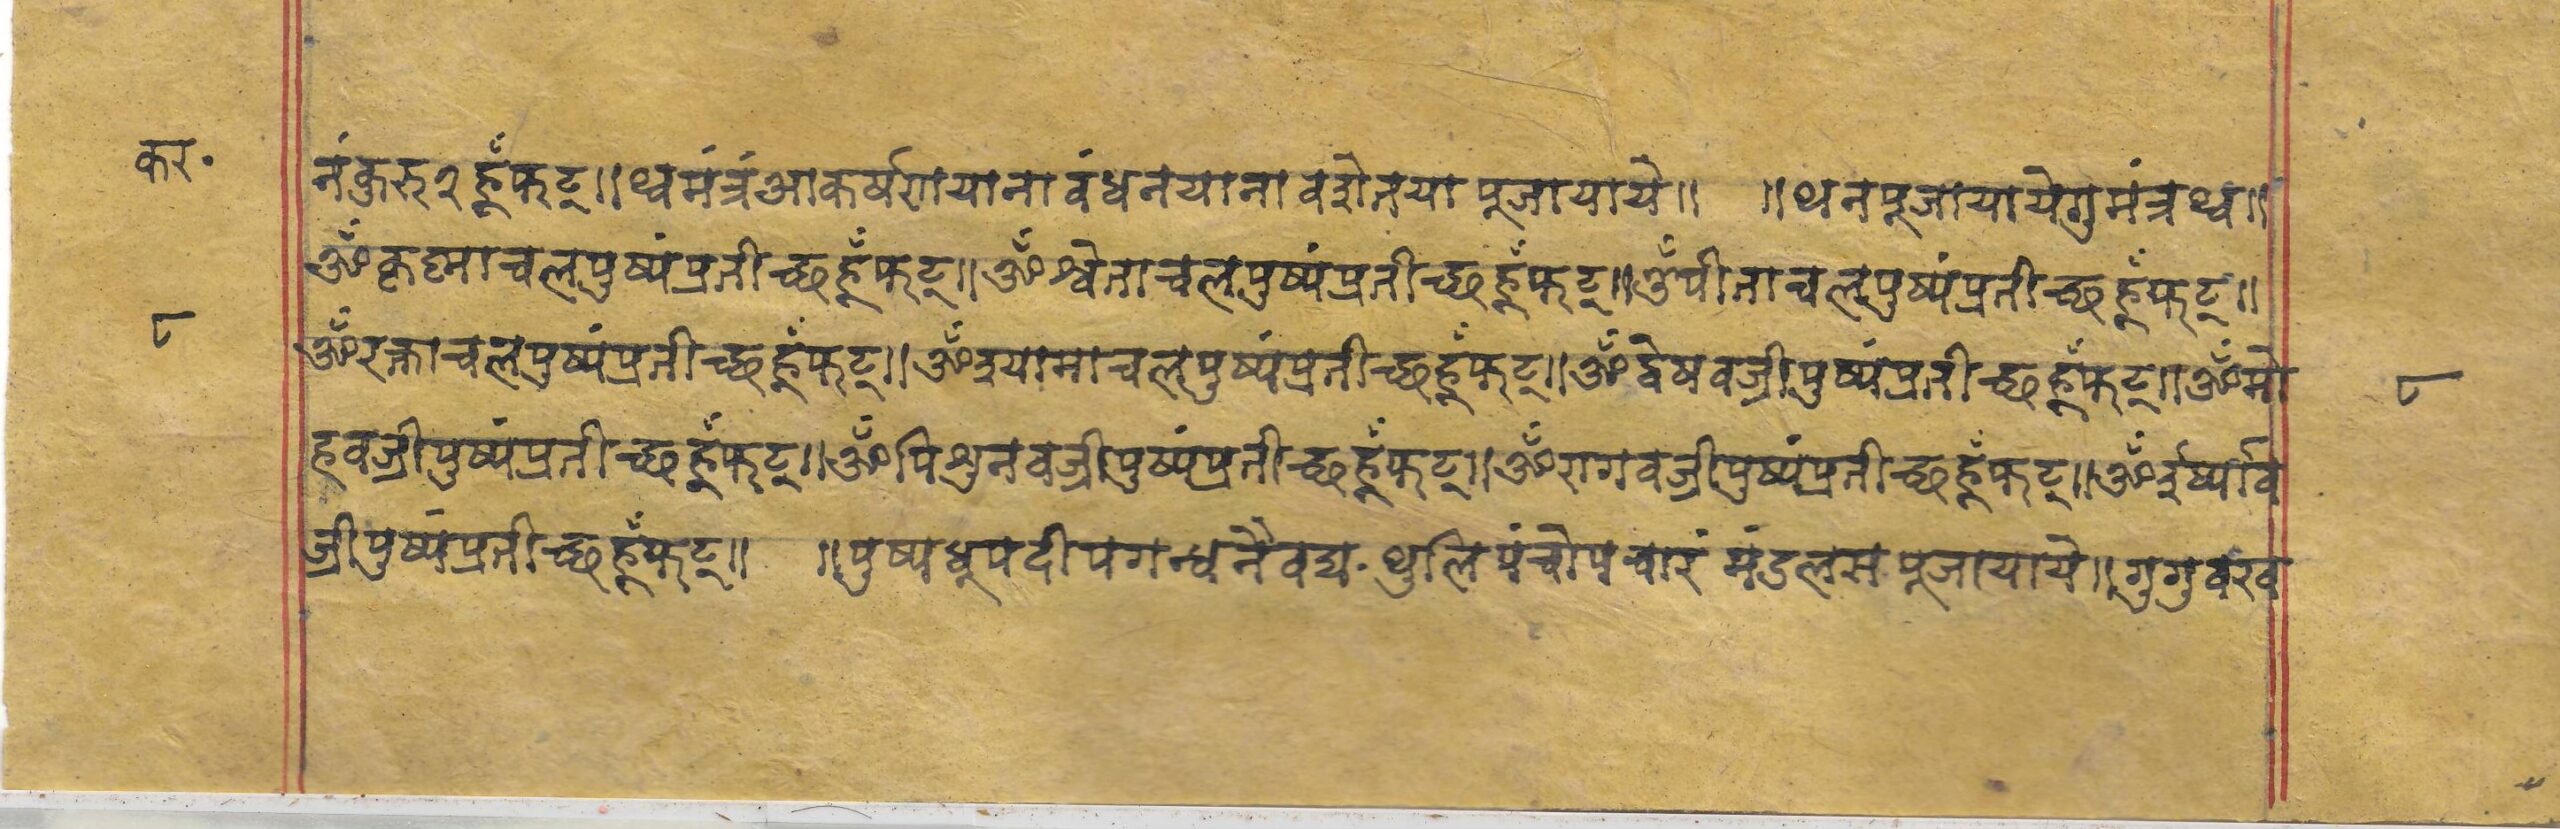 कर.
नंकुरु२हूँफट्॥थ्वमंत्रंआकर्षणयानावंधनयानावशेनयापूजायाये॥ ॥थनपूजायायेगुमंत्रथ्व॥
ॐकृष्णाचलपुष्पंप्रतीच्छहूँफट्॥ॐश्वेताचलपुष्पंप्रतीच्छहूँफट्॥ॐपीताचलपुष्पंप्रतीच्छहूँफट्॥
८
ॐरक्ताचलपुष्पंप्रतीच्छहूँफट्॥ॐश्यामाचलपुष्पंप्रतीच्छहूँफट्॥ॐद्वेषवज्रीपुष्पंप्रतीच्छहूँफट्॥ॐमो
८
हवज्रीपुष्पंप्रतीच्छहूँफट्॥ॐपिशुनवज्रीपुष्पंप्रतीच्छहूँफट्॥ॐरागवज्रीपुष्पंप्रतीच्छहूँफट्॥ॐईर्ष्याव
ज्रीपुष्पंप्रतीच्छहूँफट्॥ ॥पुष्पधुपदीपगन्धनैवद्य.थुलिपंचोपचारंमंडलसपूजायाये॥गुगुवंखव